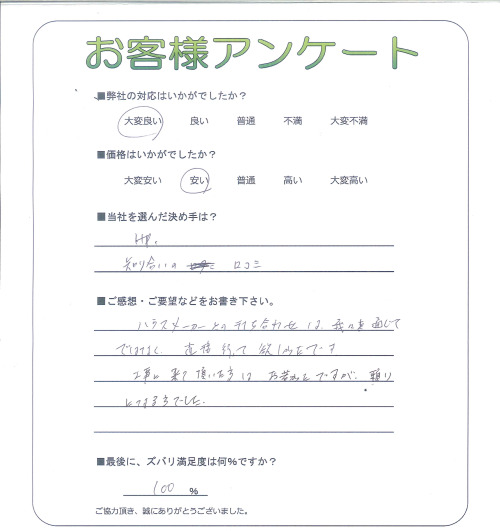 お客様アンケート
■弊社の対応はいかがでしたか？
大変良い 良い 普通 不満 大変不満
■価格はいかがでしたか？
大変安い 安い 普通 高い 大変高い
■当社を選んだ決め手は？
HP.
知り合いの 口コミ
■ご感想・ご要望などをお書き下さい。
ハウスメーカーとの打ち合わせは、 を通じて
ではなく、直接行って欲しかったです
工事に来て頂いた方は お若い ですが、頼り
になる方でした.
■最後に、ズバリ満足度は何％ですか？
100 ％
ご協力頂き、誠にありがとうございました。